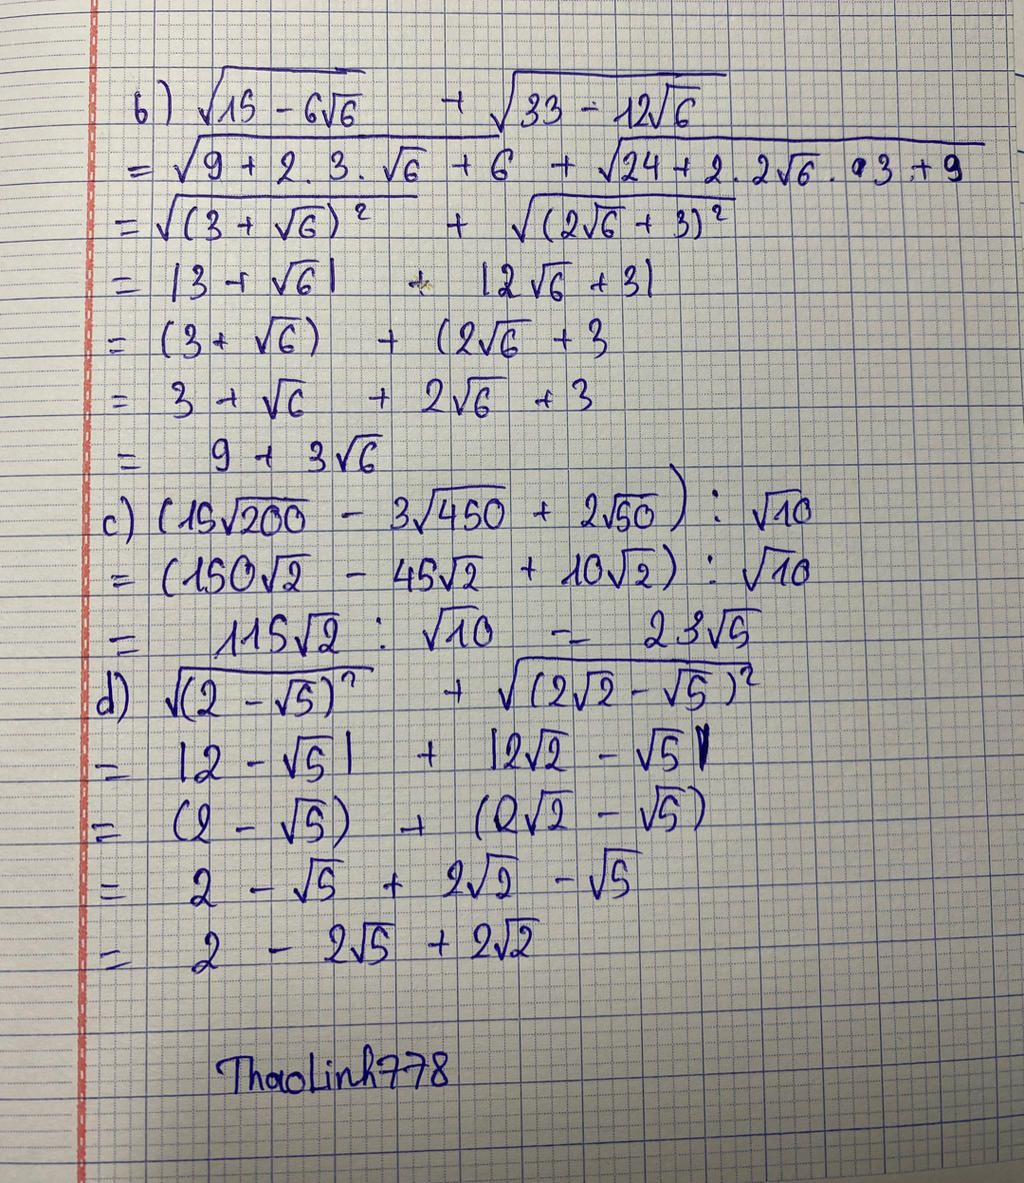 b) √(15 - 6√6) + √(33 - 12√6)
= √(9 + 2.3.√6 + 6) + √(24 + 2.2√6.3 + 9)
= √((3 + √6)²) + √((2√6 + 3)²)
= |3 + √6| + |2√6 + 3|
= (3 + √6) + (2√6 + 3
= 3 + √6 + 2√6 + 3
= 9 + 3√6
c) (15√200 - 3√450 + 2√50) : √10
= (150√2 - 45√2 + 10√2) : √10
= 115√2 : √10 = 23√5
d) √((2 - √5)²) + √((2√2 - √5)²)
= |2 - √5| + |2√2 - √5|
= (2 - √5) + (2√2 - √5)
= 2 - √5 + 2√2 - √5
= 2 - 2√5 + 2√2
ThaoLinh778